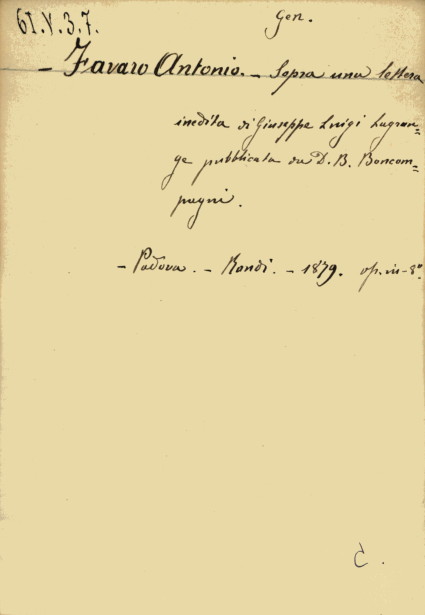 61.V.3.7.
Gen.
– Favaro Antonio. – Sopra una lettera
inedita di Giuseppe Luigi Lagran=
ge pubblicata da D. B. Boncom=
pagni.
– Padova. – Randi. – 1879. op. in-8°.
C .